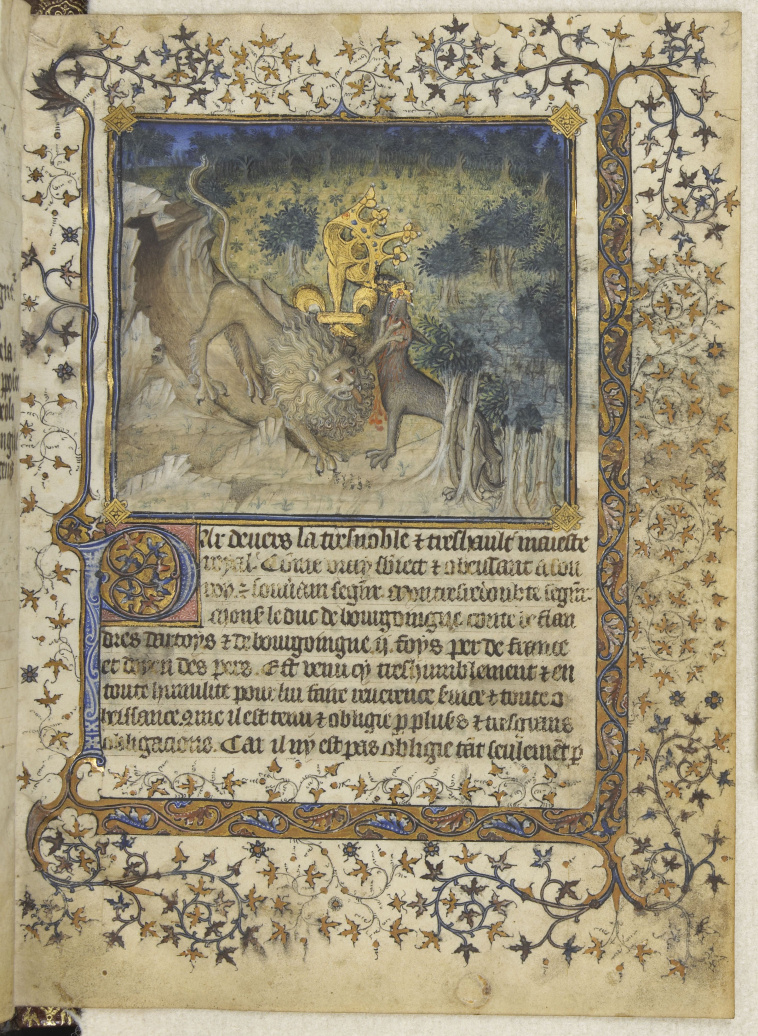 Par deuers la tresnoble & treshault maieste
royal. Come vray sbiect & obeissant a son
roy & souuain segnr. mon tresredoubte segnr.
mons le duc de bourgoingne conte de flan
dres dartoys & de bourgoingne. ij. foys per de france
et doyen des pers. Est venu cy treshumblement & en
toute humilite pour lui faire reuerence seruice & toute o
beissance. aine il est tenu & obligie p plus s & tresgrans
obligacions. Car il ny est pas obligie tāt seulemēt p